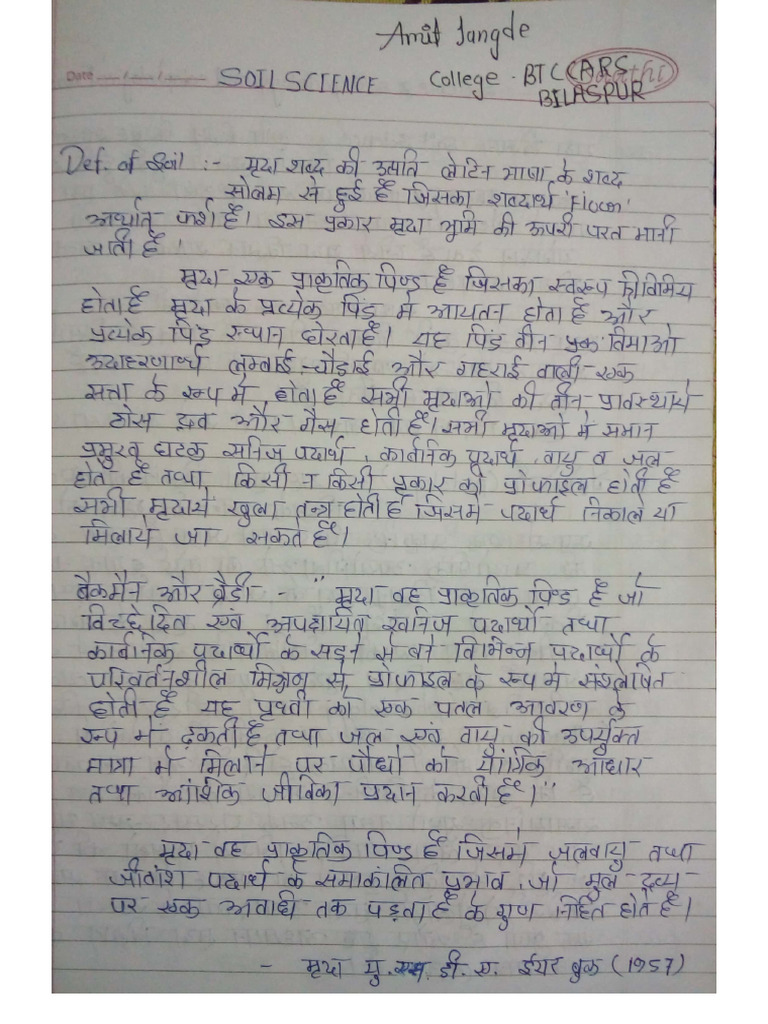 Amit Jangde
Date
SOIL SCIENCE College - BTC CARS
BILASPUR
Def. of Soil :- मृदा शब्द की उत्पति लेटिन भाषा के शब्द
सोलम से हुई है जिसका शब्दार्थ 'Floor'
अर्थात् फर्श है। इस प्रकार मृदा भूमि की ऊपरी परत मानी
जाती है।
मृदा एक प्राकृतिक पिण्ड है जिसका स्वरूप त्रीविमिय
होता है मृदा के प्रत्येक पिंड मे आयतन होता है और
प्रत्येक पिंड स्थान घेरता है। यह पिंड तीन विमाओ
उदाहरणार्थ लम्बाई - चौड़ाई और गहराई वाली एक
सत्ता के रूप मे होता है सभी मृदाओ की तीन प्रावस्थाये
ठोस द्रव और गैस होती है। सभी मृदाओ मे समान
प्रमुख घटक खनिज पदार्थ, कार्बनिक पदार्थ, वायु व जल
होते है तथा किसी न किसी प्रकार की प्रोफाइल होती है
सभी मृदाये खुला तन्त्र होती है जिसमे पदार्थ निकाले या
मिलाये जा सकते है।
बैकमैन और ब्रैडी - "मृदा वह प्राकृतिक पिण्ड है जो
विच्छेदित एवं अपक्षायित खनिज पदार्थो तथा
कार्बनिक पदार्थो के सड़ने से बने विभिन्न पदार्थो के
परिवर्तनशील मिश्रण से प्रोफाइल के रूप मे संश्लेषित
होती है यह पृथ्वी को एक पतले आवरण के
रूप मे ढ़कती है तथा जल एवं वायु की उपर्युक्त
मात्रा मे मिलाने पर पौधो को यांत्रिक आधार
तथा आंशिक जीविका प्रदान करती है।"
मृदा वह प्राकृतिक पिण्ड है जिसमे जलवायु तथा
जीवांश पदार्थ के समाकलित प्रभाव जो मूल द्रव्य
पर एक अवधि तक पड़ता है के गुण निहित होते है।
- मृदा यु. एस. डी. ए. ईयर बुक (1957)